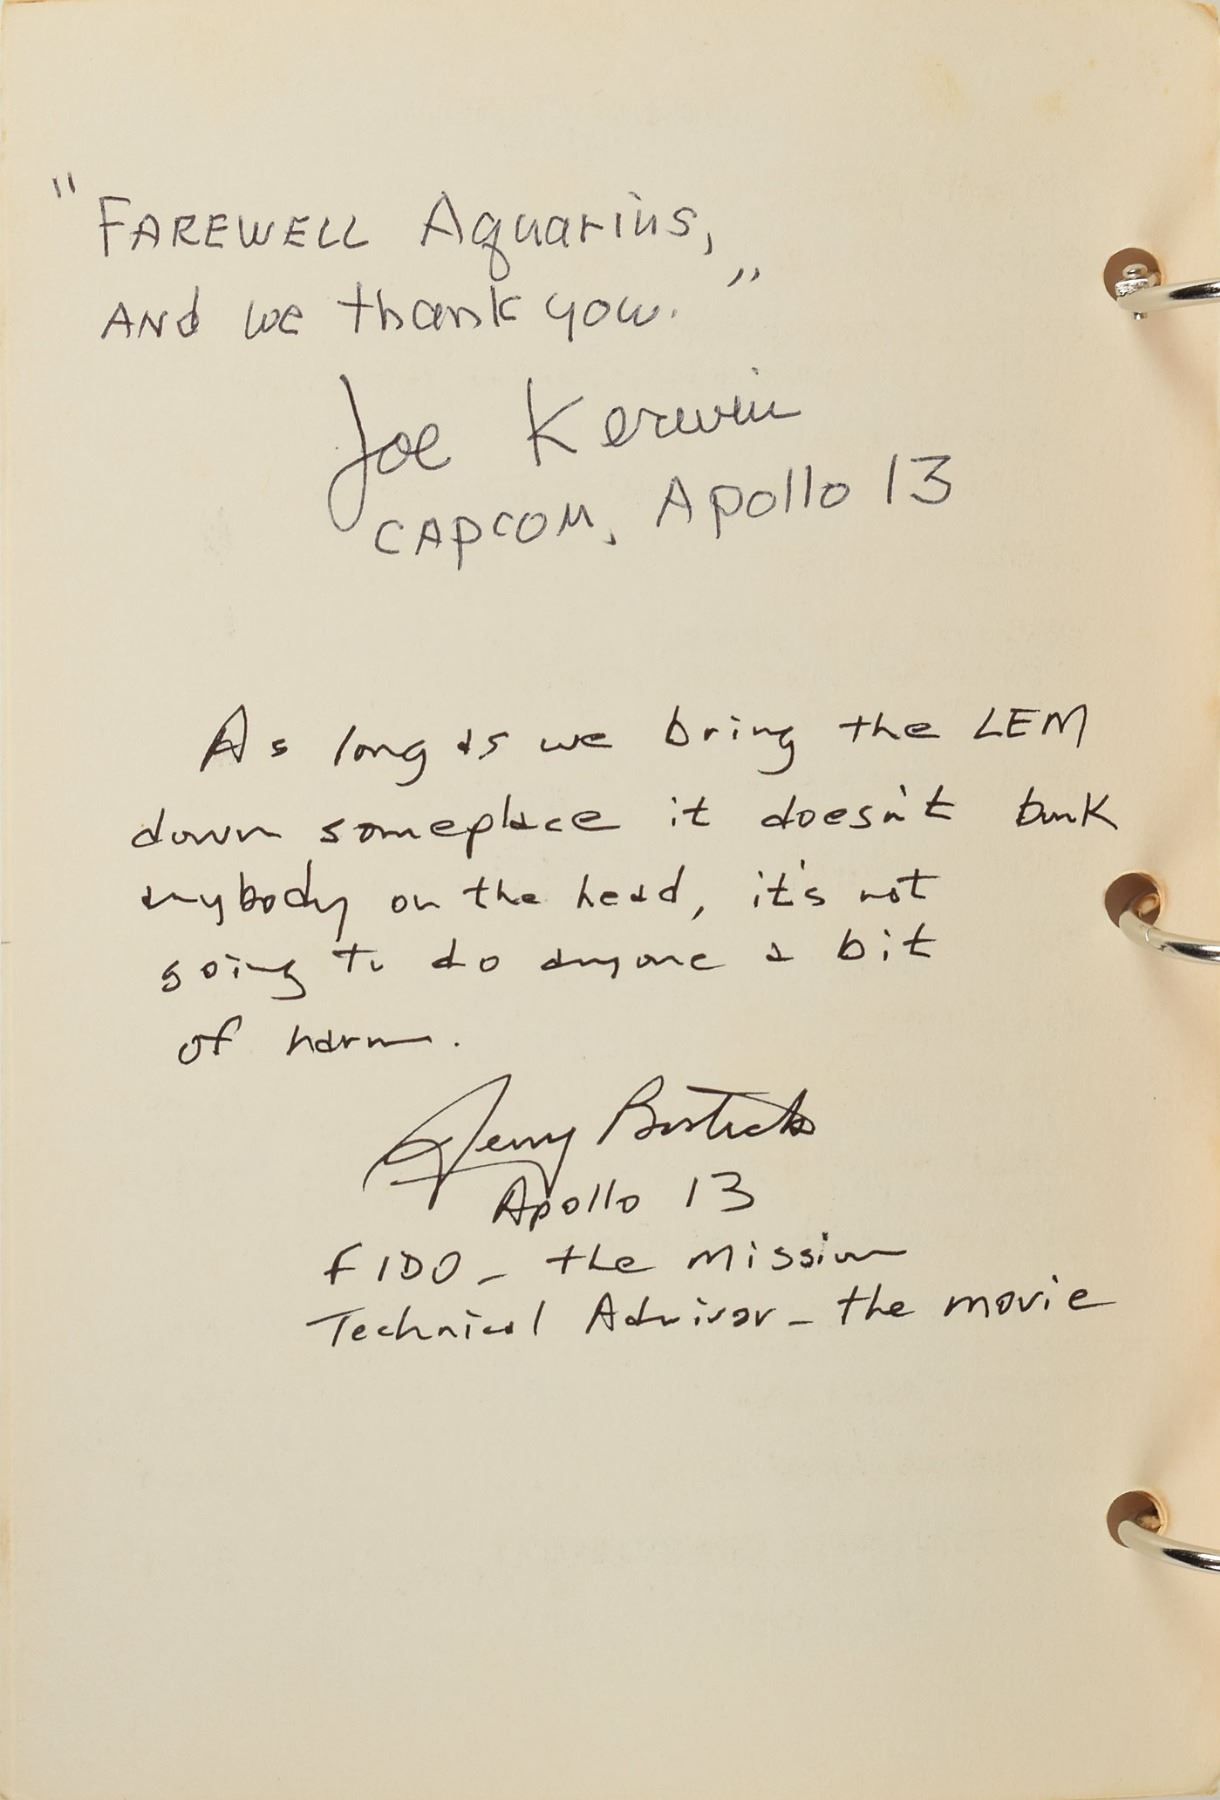 "FAREWELL Aquarius,
AND we thank you."
Joe Kerwin
CAPCOM, Apollo 13
As long as we bring the LEM
down someplace it doesn't bonk
anybody on the head, it's not
going to do anyone a bit
of harm.
Jerry Bostick
Apollo 13
FIDO - the mission
Technical Advisor - the movie